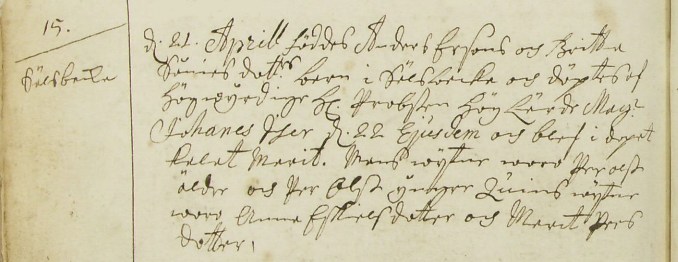 15.
Sölsbecke
d. 21 Aprill föddes Anders Ersons och Britta
Sunesdotters barn i Sölsbecke och döptes af
Högwyrdige H. Probsten Höglärde Mag.
Johanes Iser d. 22 Ejusdem och blef i dopet
kalat Merit. Mans wytne woro Per olss
äldre och Per Olss yngre Quins wytne
woro Anna Eskelsdotter och Merit Pers
dotter.